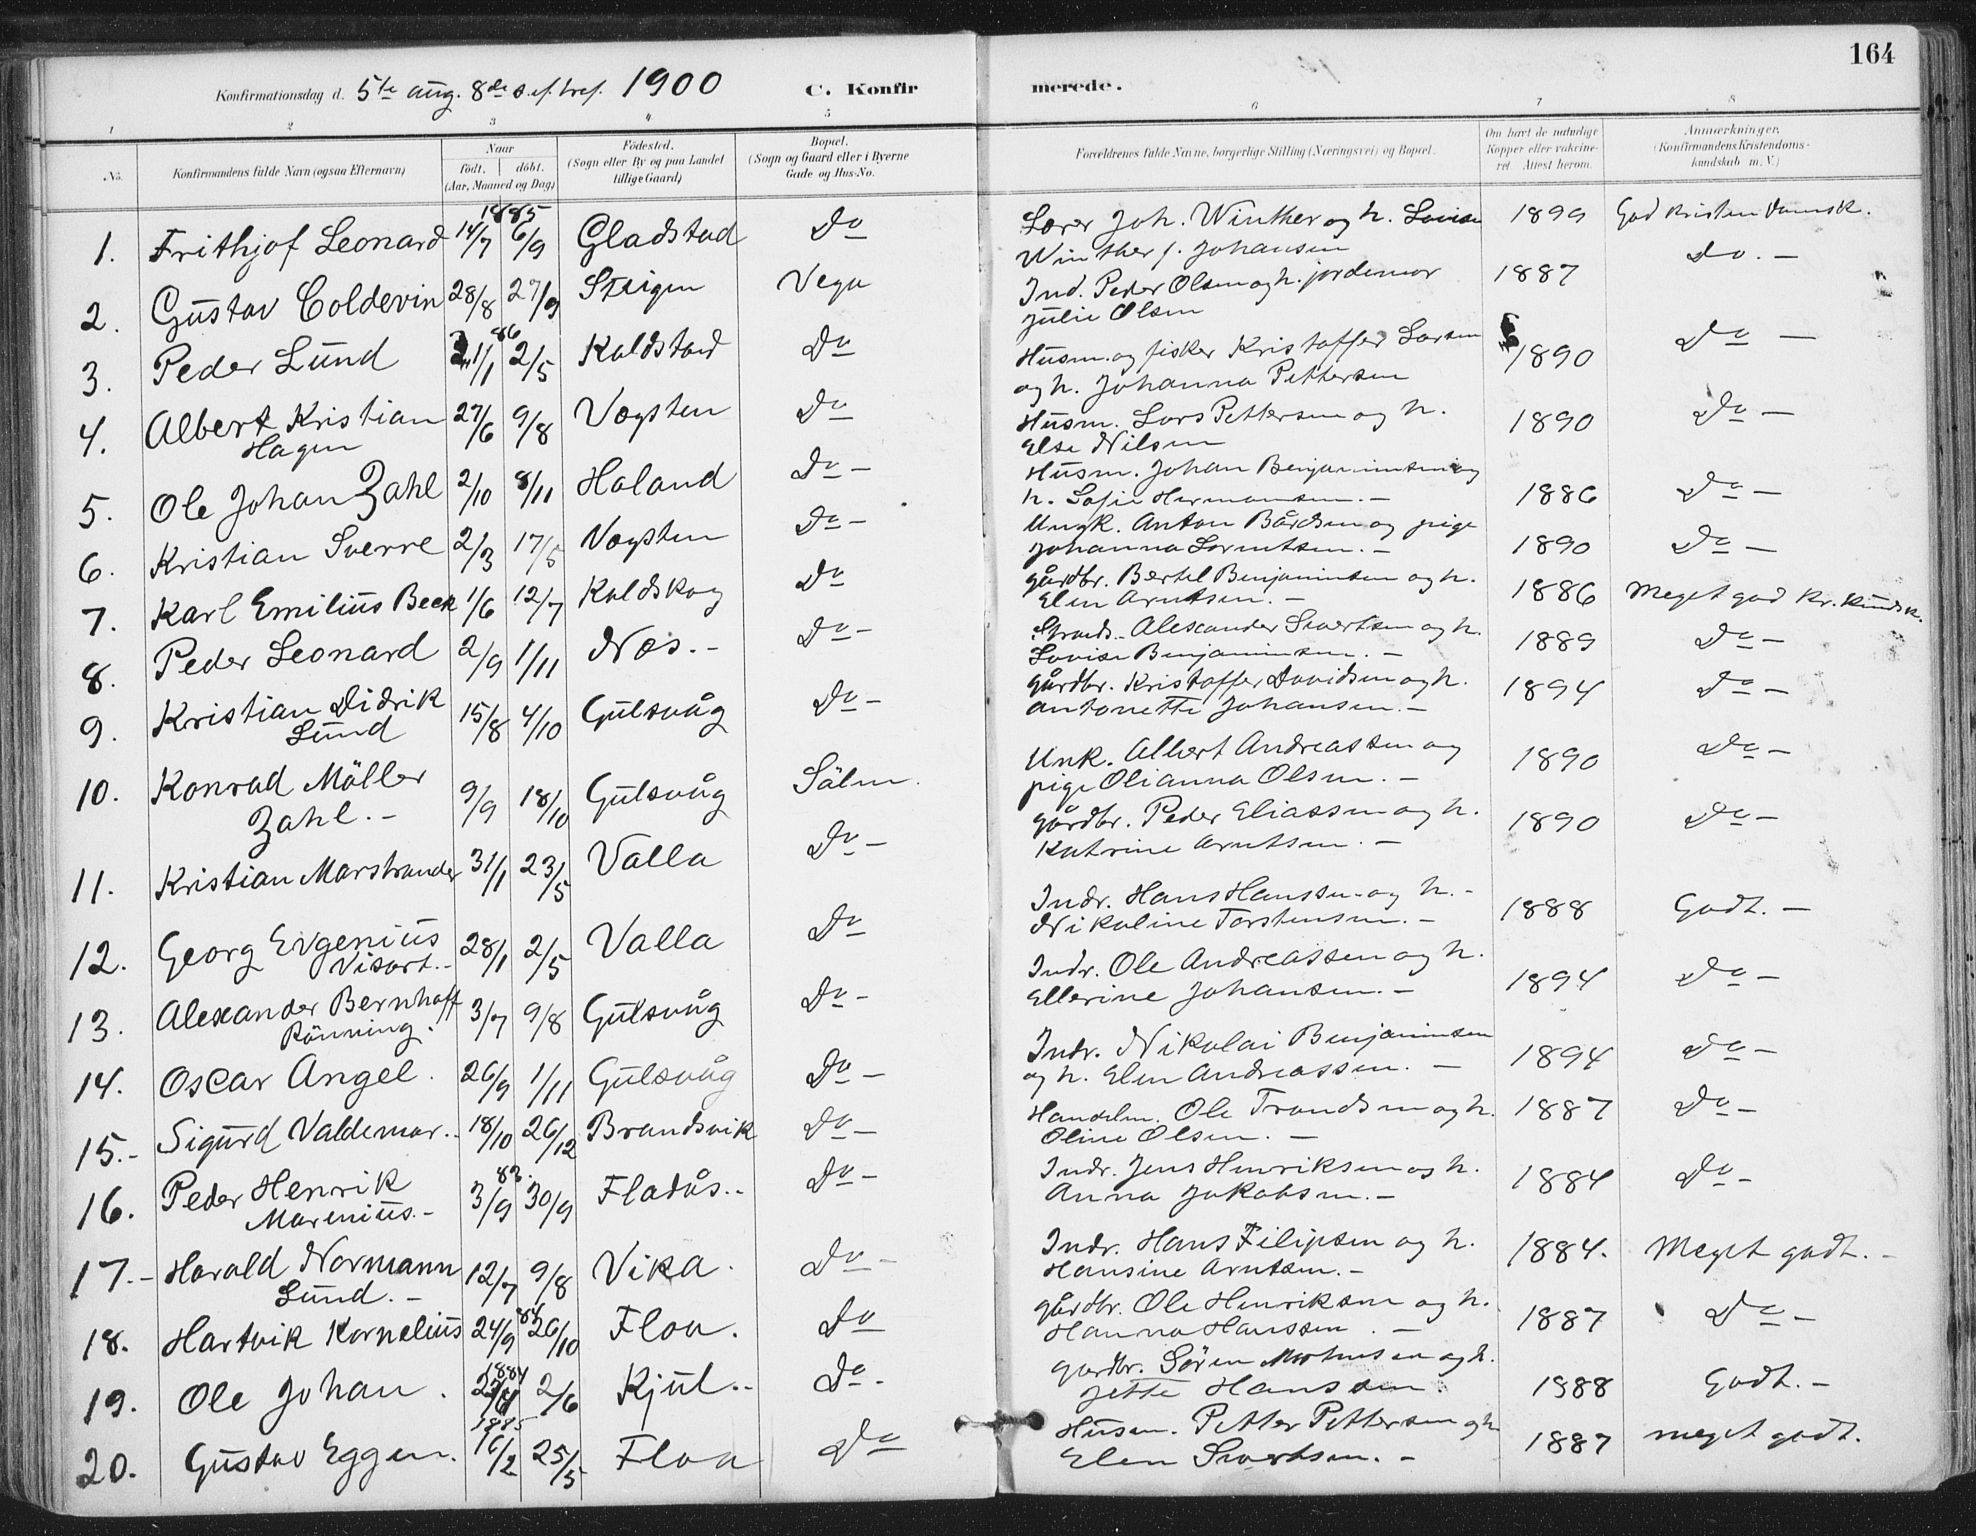 164
Konfirmationsdag d. 5te aug. 8de s. ef. tref. 1900 C. Konfirmerede.
1 2 3 4 5 6 7 8
No. Konfirmandens fulde Navn (ogsaa Efternavn) Naar født. døbt. (Aar, Maaned og Dag) Fødested. (Sogn eller By og paa Landet tillige Gaard) Bopæl. (Sogn og Gaard eller i Byerne Gade og Hus-No. Forældrenes fulde Navne, borgerlige Stilling (Næringsvei) og Bopæl. Om havt de naturlige Kopper eller vakcineret Attest herom. Anmærkninger. (Konfirmandens Kristendomskundskab m. V.)
1. Frithjof Leonard 1885 14/7 6/9 Gladstad Do Lærer Joh. Winther og h. Lovise 1899 God kristendomsk.
Winther f. Johansen
2. Gustav Coldevin 28/8 27/9 Steigen Vega Ind. Peder Olsen og h. jordemor 1887 Do. -
Julie Olsen
3. Peder Lund 86 21/1 2/5 Koldstad Do Husm. og fisker Kristoffer Larsen 1890 Do -
og h. Johanna Pettersen
4. Albert Kristian 27/6 9/8 Vægsten Do Husm. Lars Pettersen og h. 1890 Do -
Hagen Else Nilsen
5. Ole Johan Zahl 2/10 8/11 Haland Do - Husm. Johan Benjaminsen og 1886 Do -
h. Sofie Hermansen. -
6. Kristian Sverre 2/3 17/5 Vægsten Do - Ungk. Anton Bårdsen og pige 1890 Do -
Johanna Lorentsen. -
7. Karl Emilius Beck 1/6 12/7 Koldskog Do gårdbr. Bertel Benjaminsen og h. 1886 Meget god kr. kundsk.
Elen Arntsen. -
8. Peder Leonard 2/9 1/11 Næs. - Do - Strands. Alexander Sivertsen og h. 1889 Do -
Lovise Benjaminsen. -
9. Kristian Didrik 15/8 4/10 Gulsvåg Do - gårdbr. Kristoffer Davidsen og h. 1894 Do -
Lund Antonette Johansen. -
10. Konrad Möller 9/9 18/10 Gulsvåg Sälen. Unk. Albert Andreassen og 1890 Do -
Zahl. - pige Olianna Olsen. -
11. Kristian Marstrander 31/1 23/5 Valla Do - gårdbr. Peder Eliassen og h. 1890 Do -
Katrine Arntsen. -
12. Georg Evgenius 28/1 2/5 Valla Do Indr. Hans Hanssen og h. - 1888 Godt. -
Visart. - Nikoline Torstensen. -
13. Alexander Bernhoft 3/7 9/8 Gulsvåg Do - Indr. Ole Andreassen og h. 1894 Do -
Rönning. Ellerine Johansen. -
14. Oscar Angel. 26/9 1/11 Gulsvåg Do - Indr. Nikolai Benjaminsen 1894 Do -
og h. Elen Andreassen. -
15. - Sigurd Valdemar. - 18/10 26/12 Brandsvik Do - Handelm. Ole Trondsen og h. 1887 Do -
Oline Olsen. -
16. Peder Henrik 83. 3/9 30/9 Fladås. - Do - Indr. Jens Henriksen og h. 1884 Do -
Marenius. - Anna Jakobsen. -
17. - Harald Normann 12/7 9/8 Vika. Do - Indr. Hans Filipsen og h. 1884. Meget godt. -
Lund. - Hansine Arntsen. -
18. Hartvik Kornelius 84 24/9 26/10 Floa. Do gårdbr. Ole Henriksen og h. 1887 Do -
Hanna Hanssen. -
19. Ole Johan. 1884 2/6 Kjul. - Do. gårdbr. Sören Mortensen og h. 1888 Godt. -
Jette Hanssen
20. Gustav Eggen. 1885 16/2 25/5 Floa Do Husm. Petter Pettersen og h 1887 meget godt.
Elen Sivertsen. -